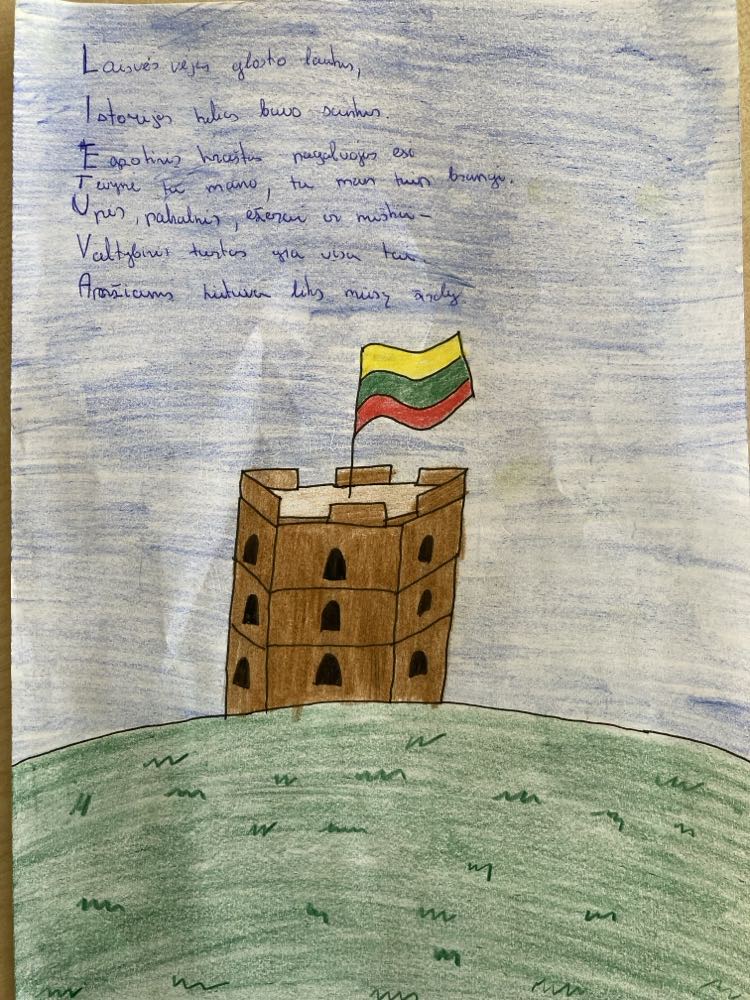 Laisvės vėjas glosto laukus,
Istorijos kelias buvo sunkus.
Tėvyne tu mano, tu man turs brangi.
Upės, pakalnės, ežerai ir miškai –
Valtybinis turtas yra visa tai
Amžiams Lietuva liks mūsų širdy